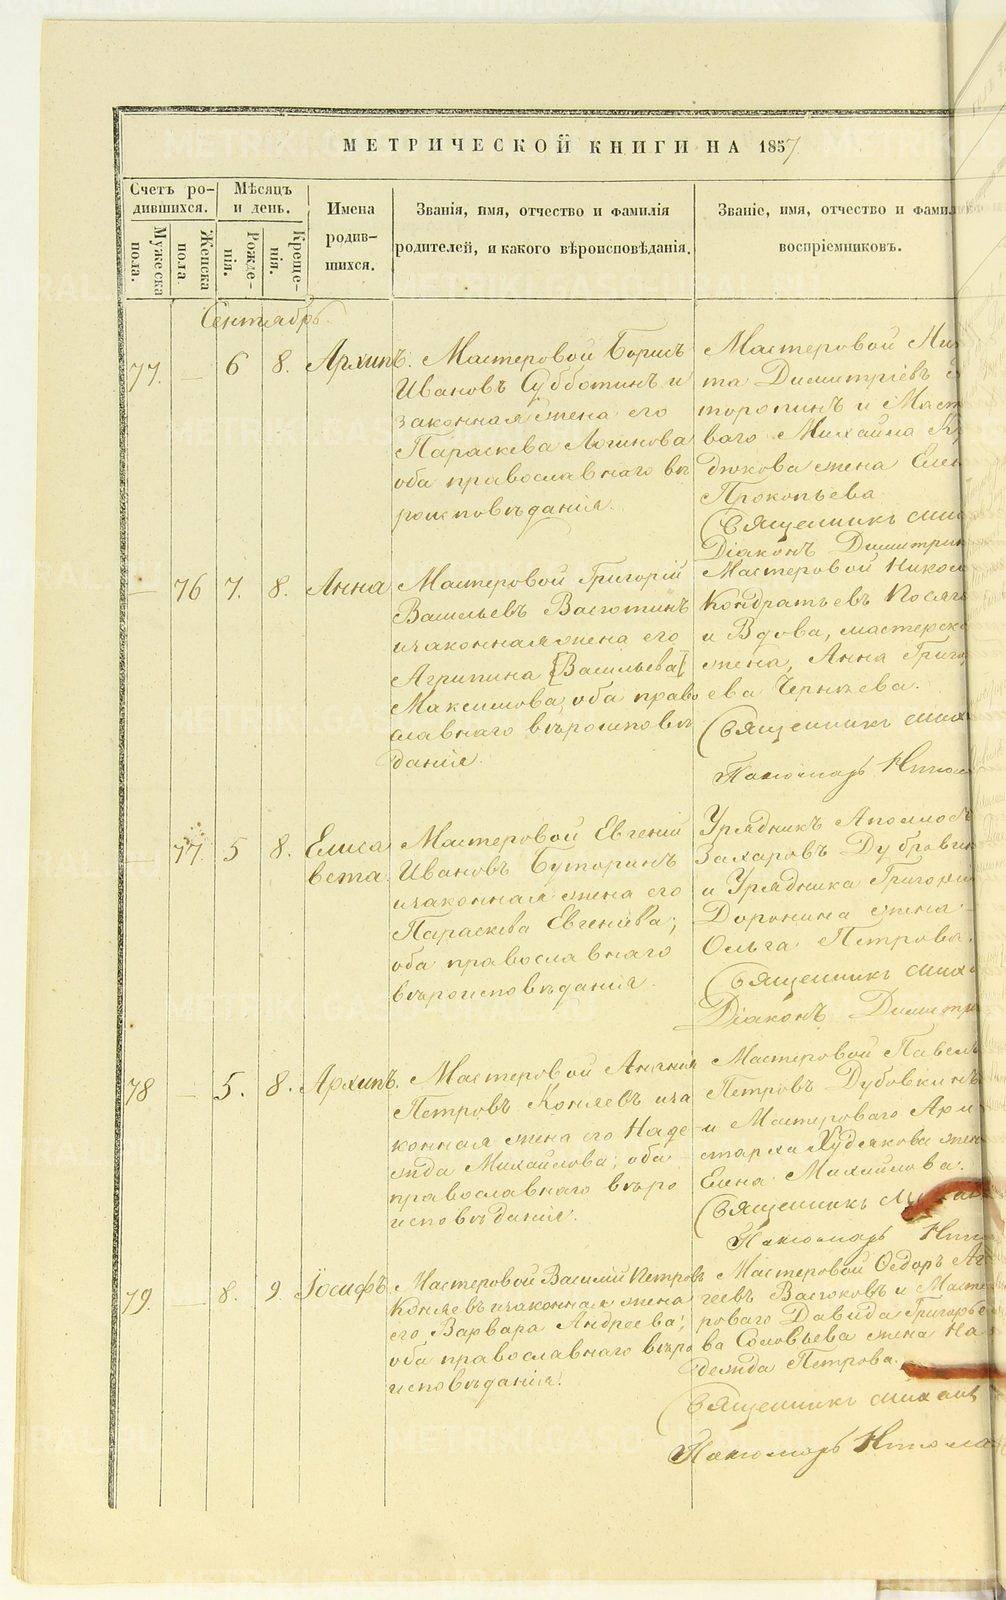 МЕТРИЧЕСКОЙ КНИГИ НА 1857
Счетъ ро-
дившихся.
Мужеска
пола.
Женска
пола.
Мѣсяцъ
и день.
Рожде-
нія.
Креще-
нія.
Имена
родив-
шихся.
Званія, имя, отчество и фамилія
родителей, и какого вѣроисповѣданія.
Званіе, имя, отчество и фамил
воспріемниковъ.
Сентябрь.
77. — 6 8. Архипъ.
Мастеровой Борисъ
Ивановъ Субботинъ и
законная жена его
Параскева Логинова
оба православнаго вѣ
роисповѣданія.
Мастеровой Ник
та Димитріевъ С
торопинъ и Маст
ваго Михаила К
дюкова жена Елен
Прокопьева.
Священникъ Мих
Діаконъ Димитри
— 76 7. 8. Анна
Мастеровой Григорій
Васильевъ Васютинъ
и законная жена его
Агрипина [Васильева]
Максимова, оба право
славнаго вѣроисповѣ
данія.
Мастеровой Никол
Кондратьевъ Посяг
и Вдова, мастерск
жена, Анна Григо
ева Чернѣева.
Священникъ Мих
Пономарь Никол
— 77. 5 8. Елиса
вета.
Мастеровой Евгеній
Ивановъ Буторинъ
и законная жена его
Параскева Евгеніева;
оба православнаго
вѣроисповѣданія.
Урядникъ Аполлосъ
Захаровъ Дубровин
и Урядника Григорія
Доронина жена
Ольга Петрова.
Священникъ Миха
Діаконъ Димитри
78 — 5. 8. Архипъ.
Мастеровой Ананія
Петровъ Коняевъ и за
конная жена его Наде
жда Михайлова; оба
православнаго вѣро
исповѣданія.
Мастеровой Павелъ
Петровъ Дубовкинъ
и Мастероваго Ари
старха Худякова жен
Елена Михайлова.
Священникъ
Пономарь Ник
79. — 8. 9. Іосифъ.
Мастеровой Василій Петровъ
Коняевъ и законная жена
его Варвара Андреева;
оба православнаго вѣро
исповѣданія.
Мастеровой Ѳедоръ Ав
геевъ Васюковъ и Масте
роваго Давида Григорье
ва Соловьева жена На
дежда Петрова.
Священникъ Михаил
Пономарь Никола